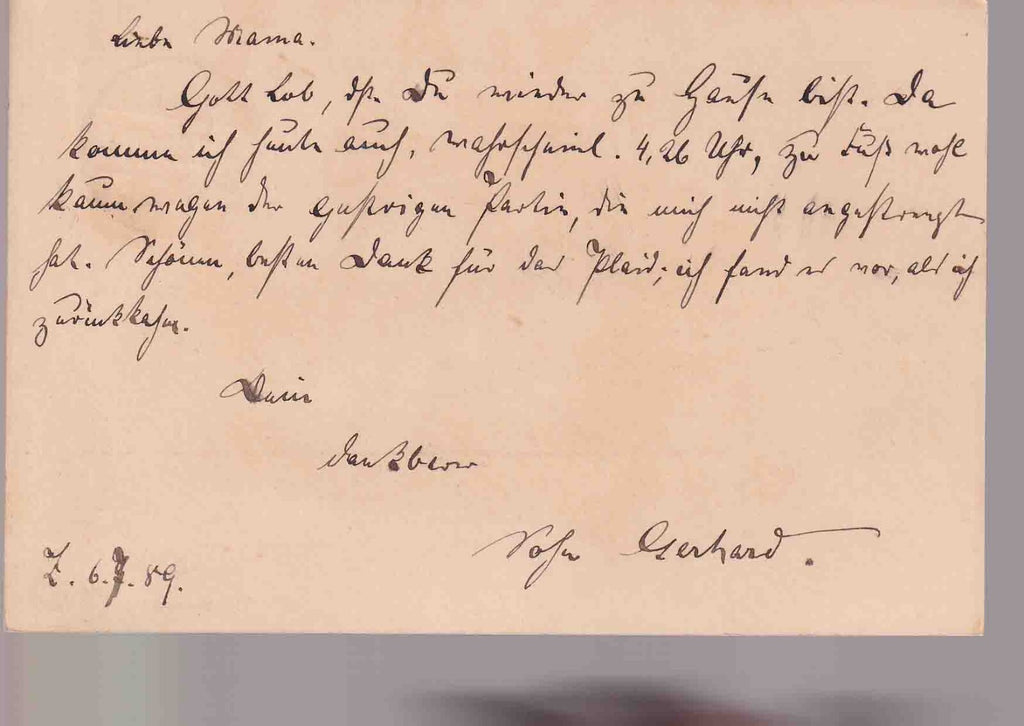 Liebe Mama.
Gott Lob, dß. Du wieder zu Hause bist. Da
komme ich heute auch, wahrscheinl. 4,26 Uhr, zu Fuß wohl
kaum wegen der gestrigen Partie, die mich nicht angestrengt
hat. Schönen, besten Dank für das Plaid; ich fand es vor, als ich
zurückkam.
Dein
dankbarer
Sohn Gerhard.
Z. 6.7.89.